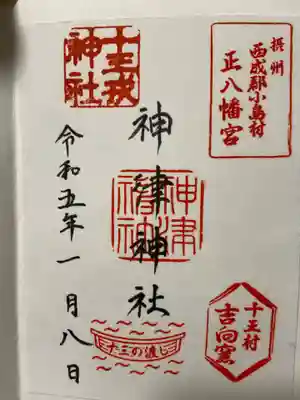 摂州
西成郡小島村
正八幡宮
十三村
吉向窯
神津神社
神津
神社
十三の渡し
十三戎
神社
令和五年一月八日